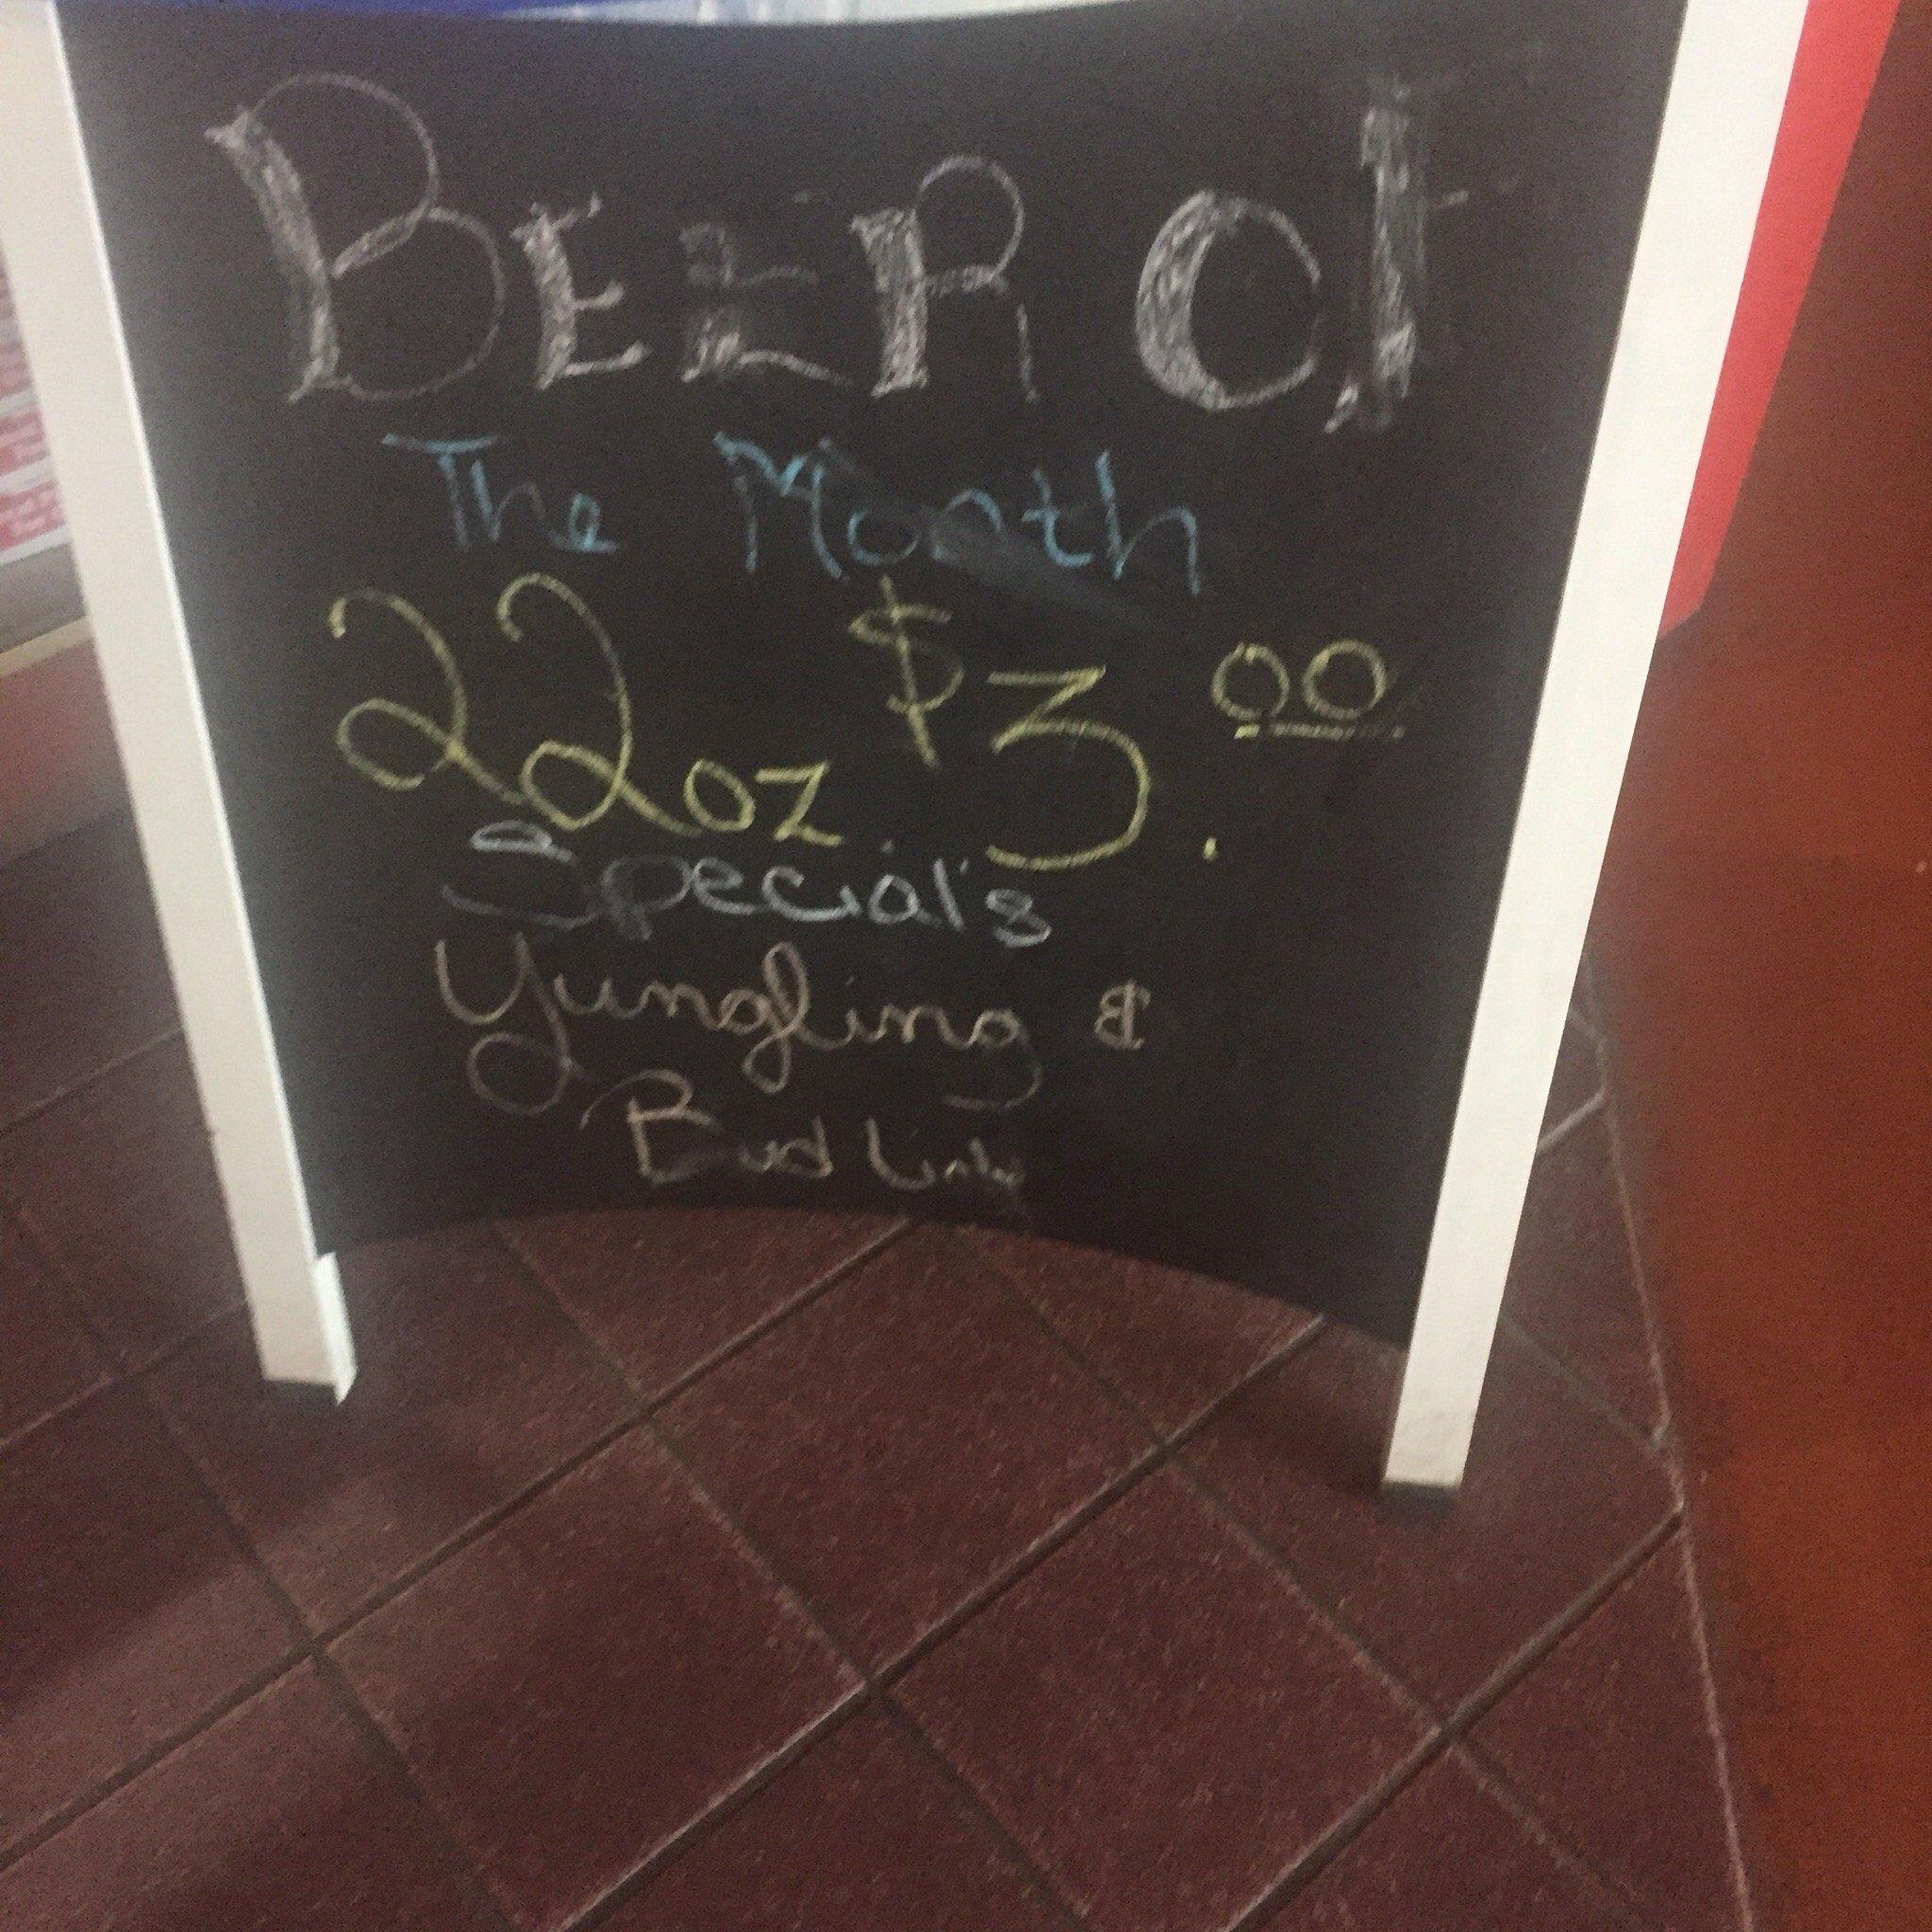 BEER Of
The Month
22oz. $3.00
Special's
Yungling &
Bud